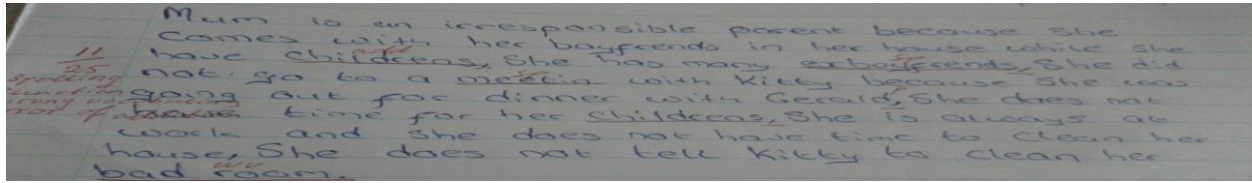 Mum is an irresponsible parent because she
comes with her boyfrends in her house while she
have childreas, She has many exboyfrends, She did
11
25
not go to a meetin with Kitty because she was
going out for dinner with Gerald, She does not
time for her childrens, She is always at
work and she does not have time to clean her
house, She does not tell Kitty to clean her
bad room.